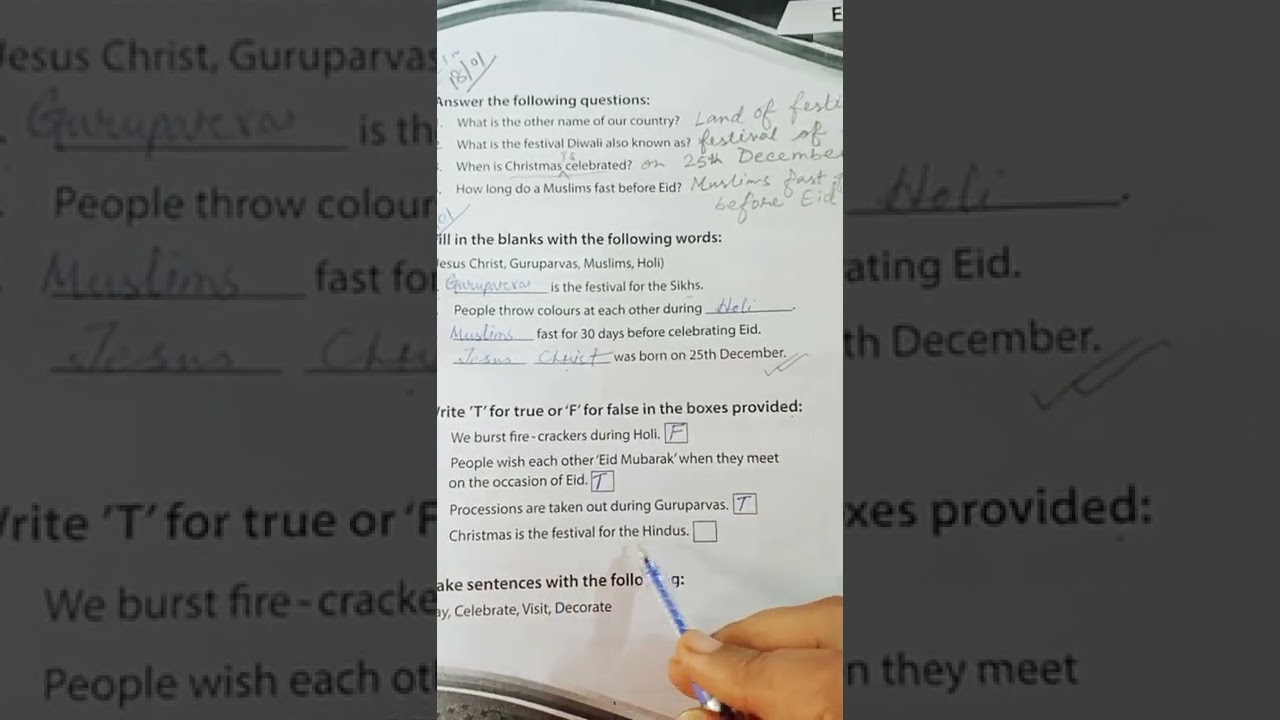 E
18/01
Answer the following questions:
What is the other name of our country? Land of
What is the festival Diwali also known as? festival of
When is Christmas celebrated? on 25th December
How long do a Muslims fast before Eid? Muslims fast
before Eid
ill in the blanks with the following words:
esus Christ, Guruparvas, Muslims, Holi)
Guruparvas is the festival for the Sikhs.
People throw colours at each other during Holi.
Muslims fast for 30 days before celebrating Eid.
Jesus Christ was born on 25th December.
rite 'T' for true or 'F' for false in the boxes provided:
We burst fire-crackers during Holi. F
People wish each other 'Eid Mubarak' when they meet
on the occasion of Eid. T
Processions are taken out during Guruparvas. T
Christmas is the festival for the Hindus.
ake sentences with the follo g:
ay, Celebrate, Visit, Decorate